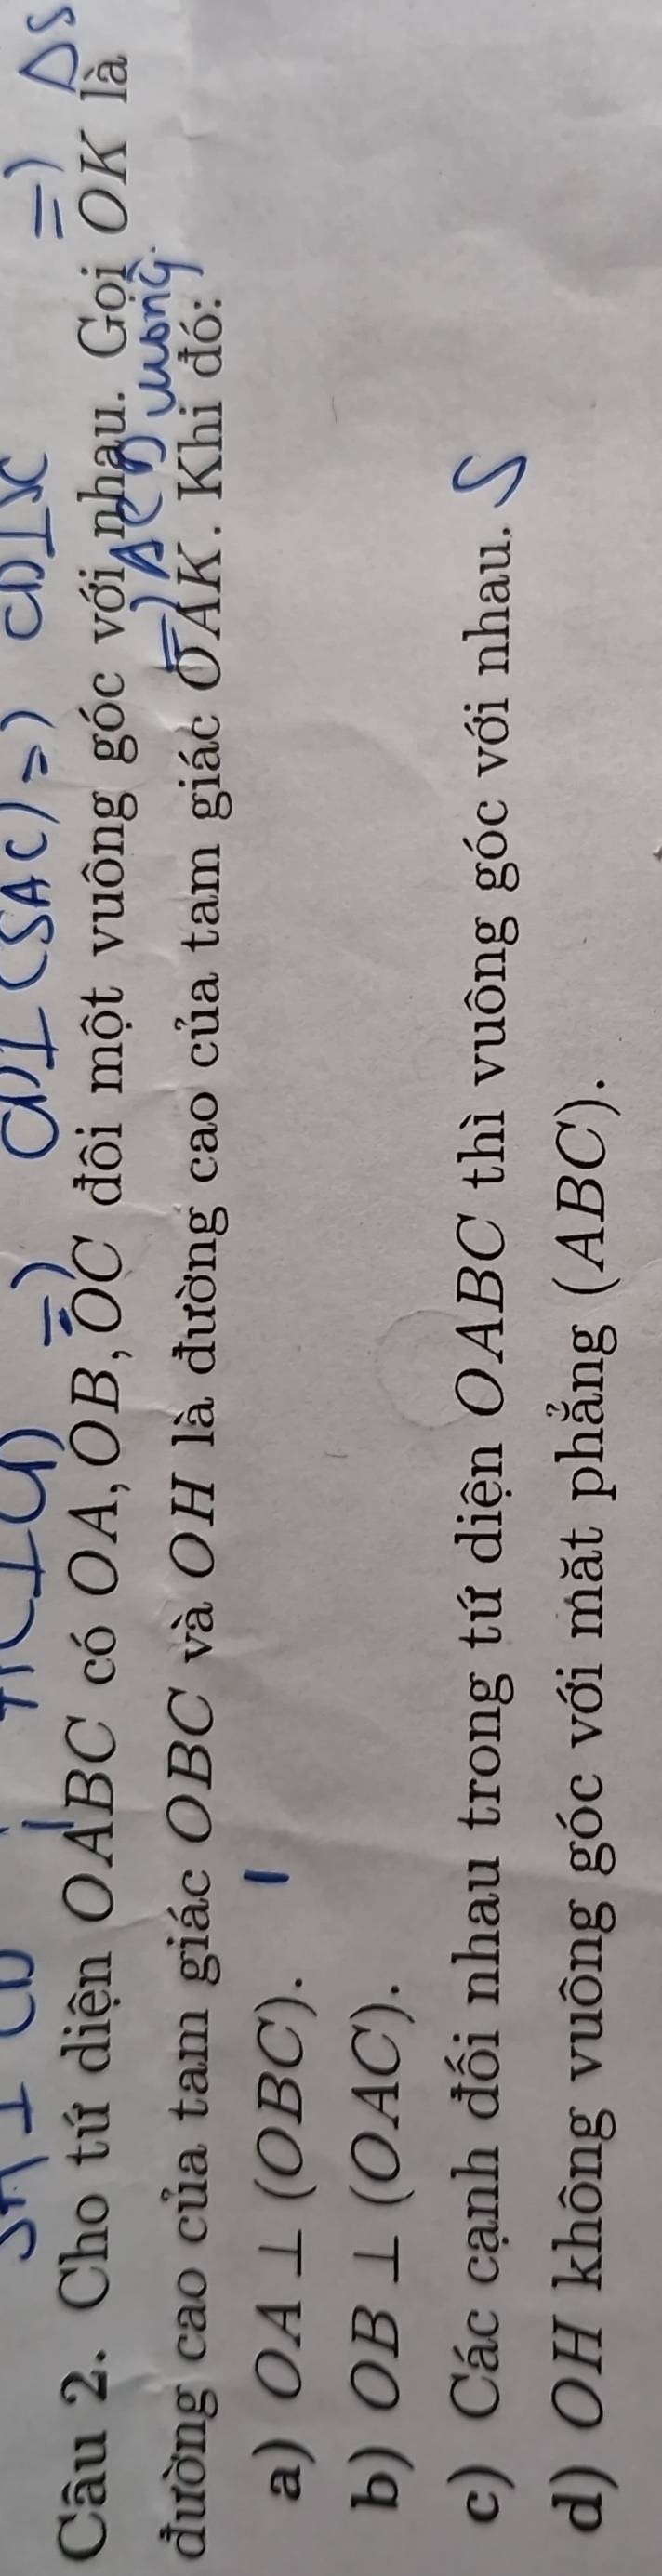 CD ⊥ (SAC) => CD ⊥ SC =>
Câu 2. Cho tứ diện OABC có OA, OB, OC đôi một vuông góc với nhau. Gọi OK là
vuông.
đường cao của tam giác OBC và OH là đường cao của tam giác OAK. Khi đó:
a) OA ⊥ (OBC).
b) OB ⊥ (OAC).
c) Các cạnh đối nhau trong tứ diện OABC thì vuông góc với nhau. S
d) OH không vuông góc với mặt phẳng (ABC).